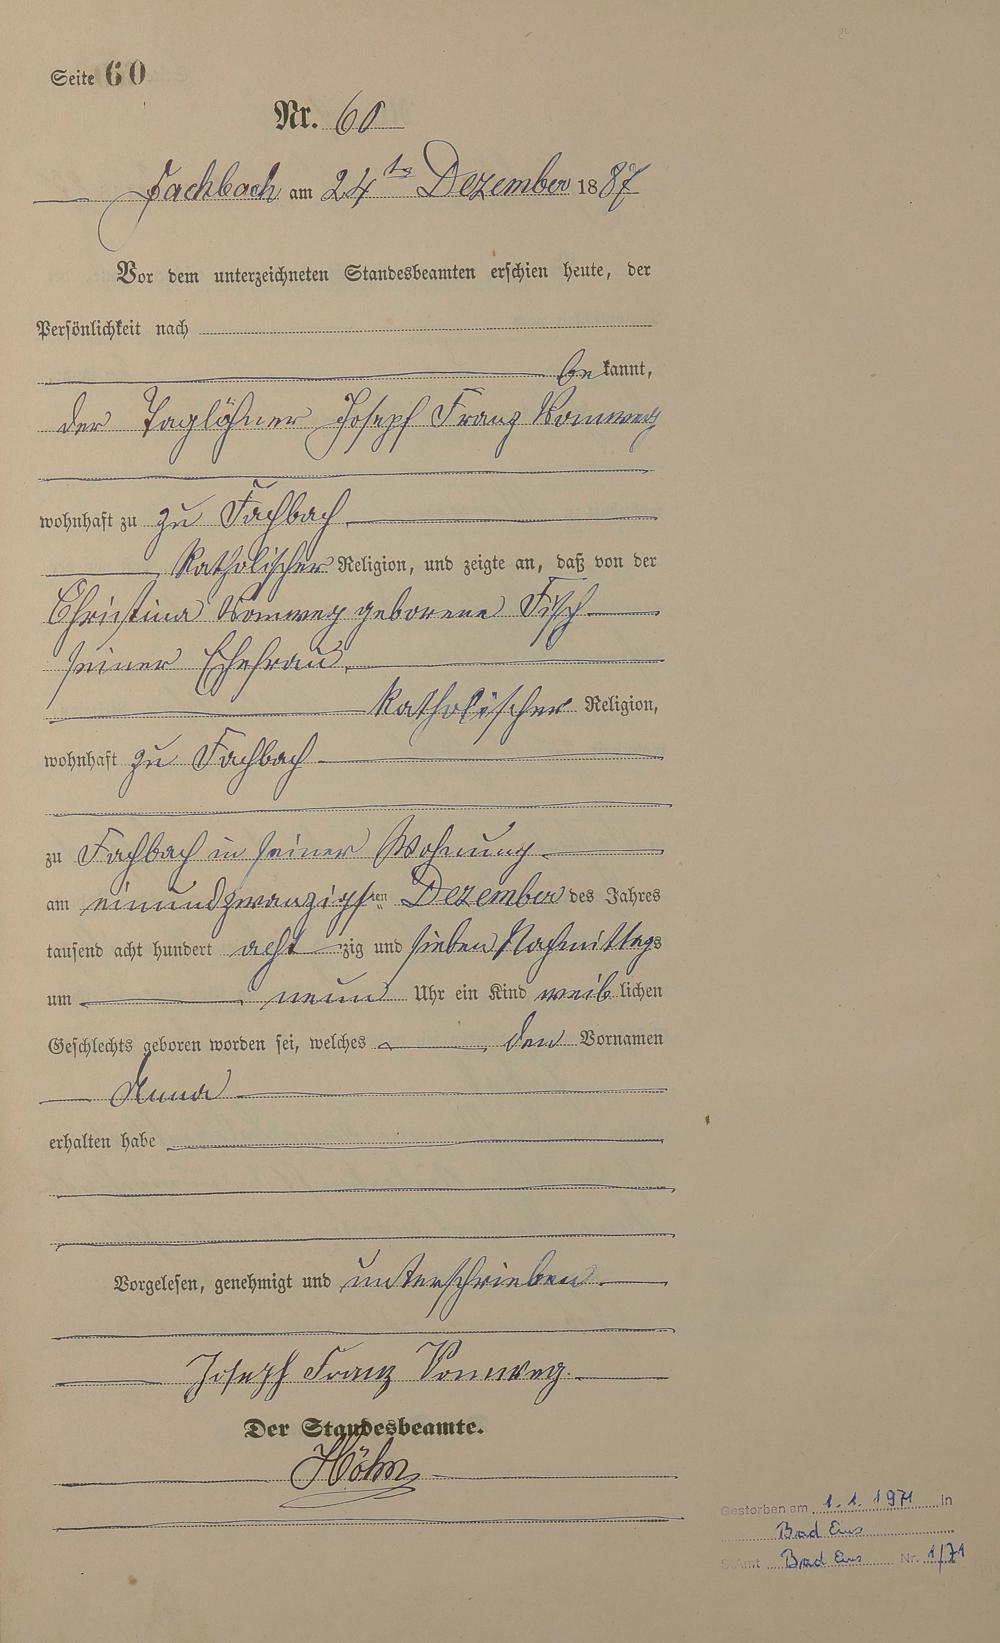 Seite 60
Nr. 60
Fachbach am 24ten Dezember 1887
Vor dem unterzeichneten Standesbeamten erschien heute, der
Persönlichkeit nach
bekannt,
der Taglöhner Joseph Franz Vomweg
wohnhaft zu zu Fachbach
katholischer Religion, und zeigte an, daß von der
Christina Vomweg geborene Fisch
seiner Ehefrau
katholischer Religion,
wohnhaft zu Fachbach
zu Fachbach in seiner Wohnung
am einundzwanzigsten Dezember des Jahres
tausend acht hundert achtzig und sieben Nachmittags
um neun Uhr ein Kind weiblichen
Geschlechts geboren worden sei, welches den Vornamen
Anna
erhalten habe
Vorgelesen, genehmigt und unterschrieben.
Joseph Franz Vomweg.
Der Standesbeamte.
Höhn
Gestorben am 1.1.1971 in
Bad Ems
StAmt Bad Ems Nr. 1/71